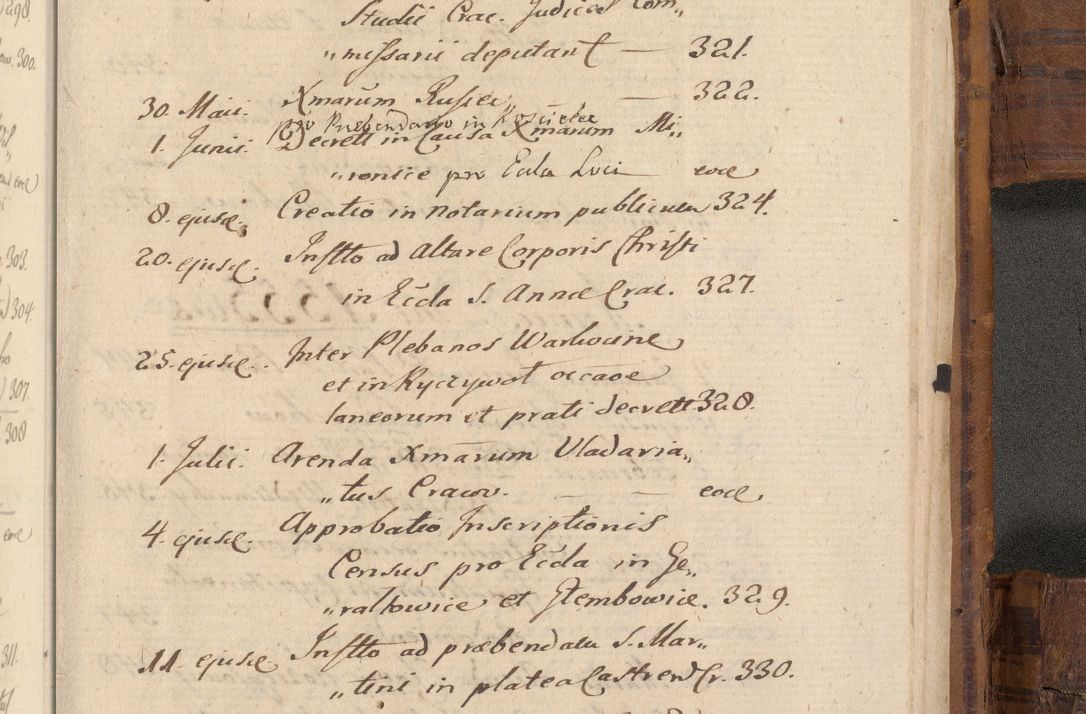 Studii Crac. Judices Com„
„missarii deputant — 321.
30. Maii. Xmarum Rusiec — 322.
pro Praebendario in Kościelec
1. Junii. Decrett in Causa Xmarum Mi„
„ronsie pro Eccla Luci eod
8. ejusd. Creatio in notarium publicum 324.
20. ejusd. Instto ad Altare Corporis Christi
in Eccla S. Annae Crac. 327.
25. ejusd. Inter Plebanos Warhoune
et in Ryczywoł occaoe
laneorum et prati decrett 328.
1. Julii. Arenda Xmarum Vladaria„
„tus Cracov. — — eod.
4. ejusd. Approbatio Inscriptionis
Census pro Eccla in Ge„
„raltowice et Głembowice. 329.
11. ejusd. Instto ad praebendam S. Mar„
„tini in platea Castren Cr. 330.
298.
300.
eod
303.
304.
307.
308
eod
311.